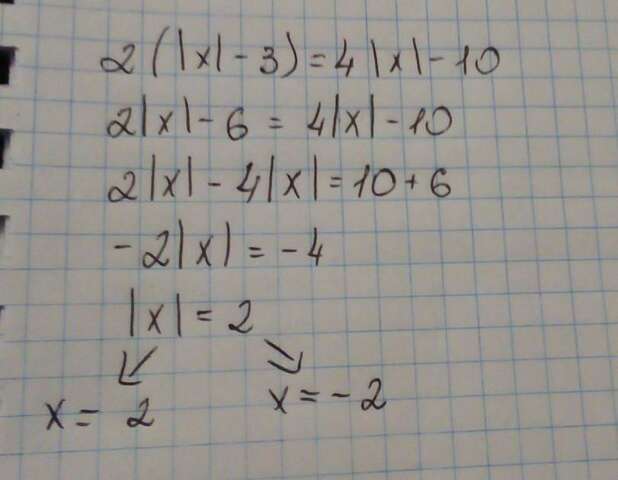 2(|x|-3)=4|x|-10
2|x|-6=4|x|-10
2|x|-4|x|=10+6
-2|x|=-4
|x|=2
↙ ↘
x=2 x=-2